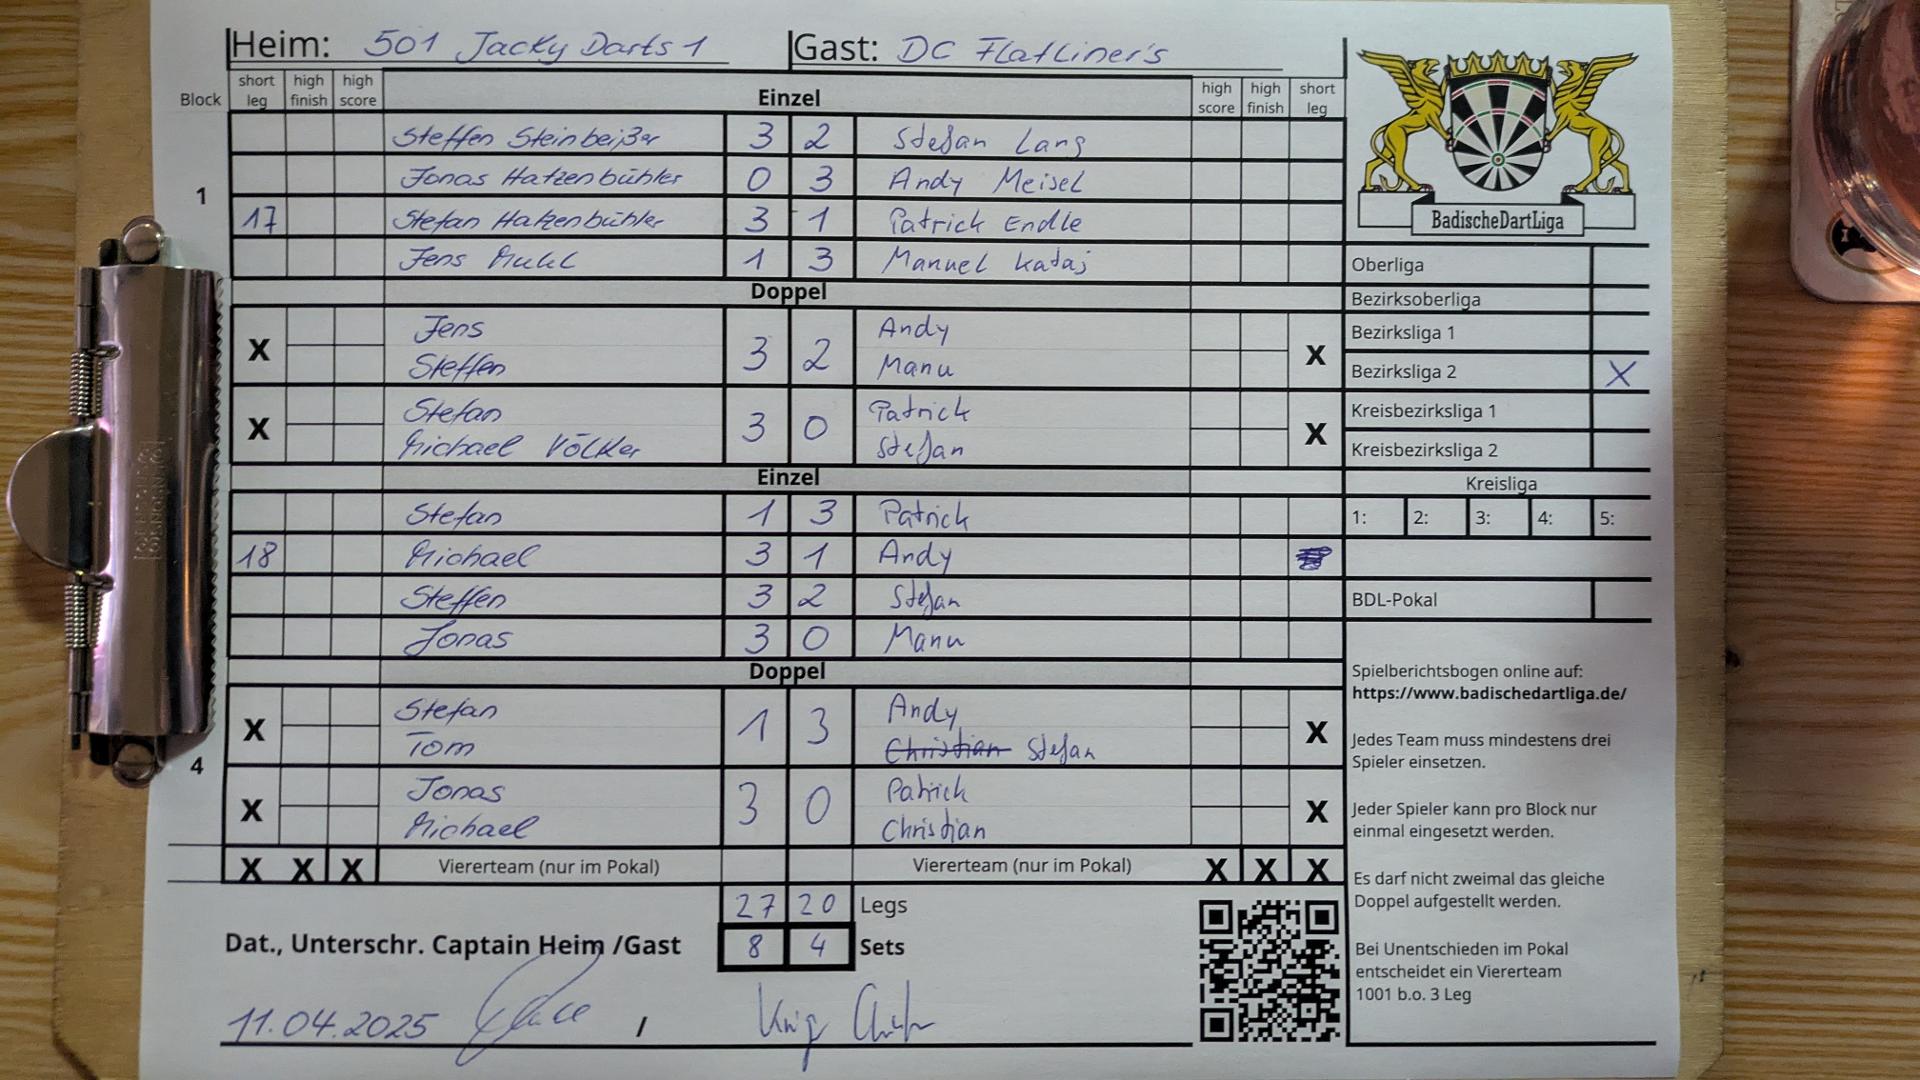 Heim: 501 Jacky Darts 1 Gast: DC Flatliner's
Block short leg high finish high score Einzel high score high finish short leg
1
Steffen Steinbeißer 3 2 Stefan Lang
Jonas Hatzenbühler 0 3 Andy Meisel
17 Stefan Hatzenbühler 3 1 Patrick Endle
Jens 1 3 Manuel Kataj
Doppel
X Jens Steffen 3 2 Andy Manu X
X Stefan Michael Völker 3 0 Patrick Stefan X
Einzel
Stefan 1 3 Patrick
18 Michael 3 1 Andy
Steffen 3 2 Stefan
Jonas 3 0 Manu
Doppel
4
X Stefan Tom 1 3 Andy Christian Stefan X
X Jonas Michael 3 0 Patrick Christian X
X X X Viererteam (nur im Pokal) Viererteam (nur im Pokal) X X X
27 20 Legs
Dat., Unterschr. Captain Heim /Gast 8 4 Sets
11.04.2025 /
BadischeDartLiga
Oberliga
Bezirksoberliga
Bezirksliga 1
Bezirksliga 2 X
Kreisbezirksliga 1
Kreisbezirksliga 2
Kreisliga
1: 2: 3: 4: 5:
BDL-Pokal
Spielberichtsbogen online auf:
https://www.badischedartliga.de/
Jedes Team muss mindestens drei
Spieler einsetzen.
Jeder Spieler kann pro Block nur
einmal eingesetzt werden.
Es darf nicht zweimal das gleiche
Doppel aufgestellt werden.
Bei Unentschieden im Pokal
entscheidet ein Viererteam
1001 b.o. 3 Leg